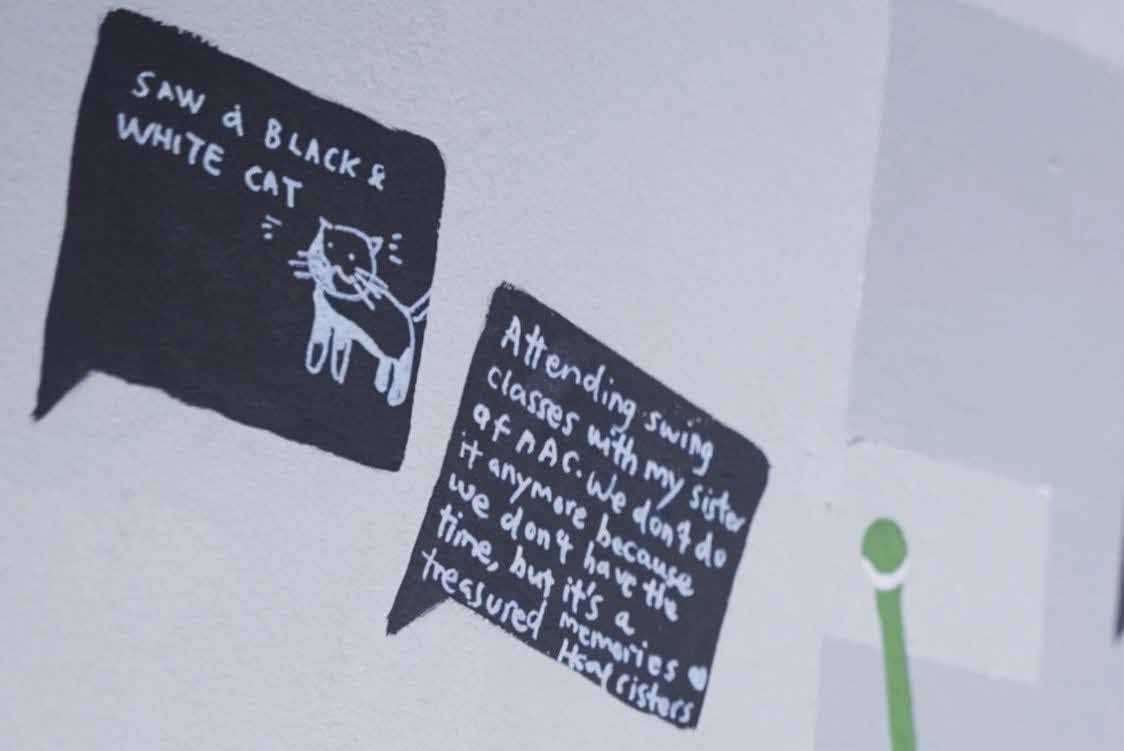 SAW a BLACK &
WHITE CAT
Attending swing
classes with my sister
at nAC. We don't do
it anymore because
we don't have the
time, but it's a
treasured memories
sisters